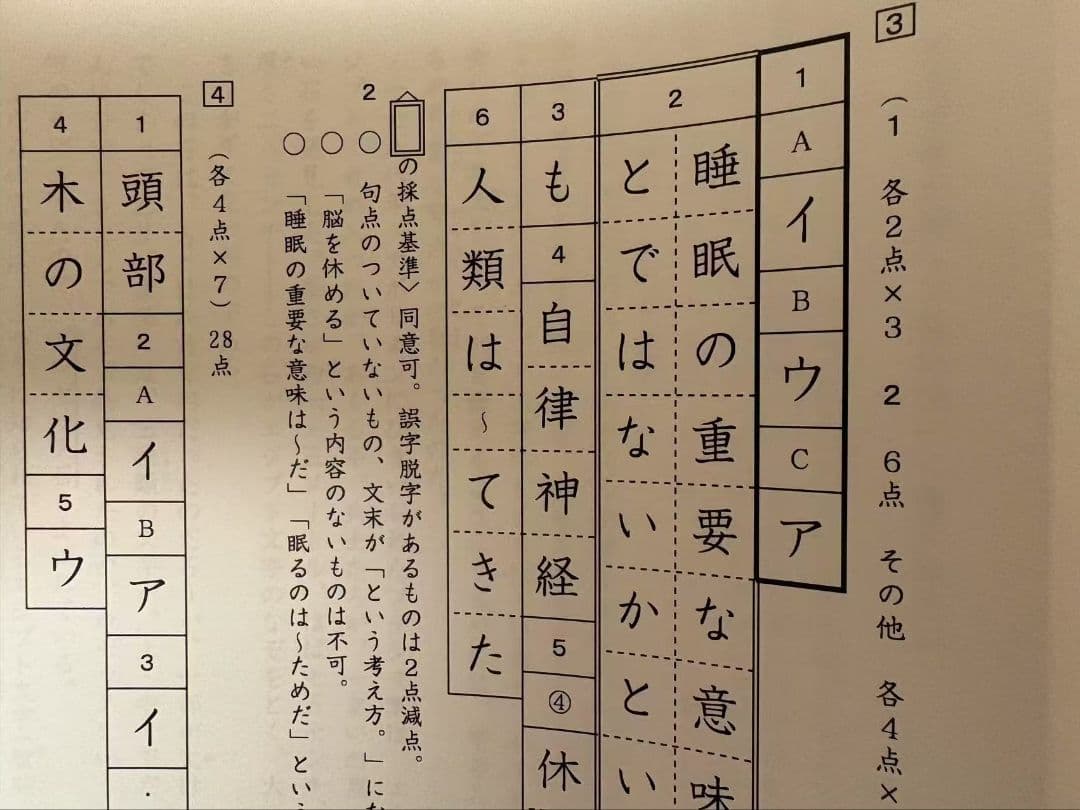 3
(1 各2点×3 2 6点 その他 各4点×
1 A イ B ウ C ア
2
睡眠の重要な意味
とではないかとい
3 も 4 自律神経 5 ④ 休
6 人類は〜てきた
〈□の採点基準〉同意可。誤字脱字があるものは2点減点。
2 ○ 句点のついていないもの、文末が「という考え方。」にな
○ 「脳を休める」という内容のないものは不可。
○ 「睡眠の重要な意味は〜だ」「眠るのは〜ためだ」という
4
(各4点×7)28点
1 頭部 2 A イ B ア 3 イ ・
4 木の文化 5 ウ